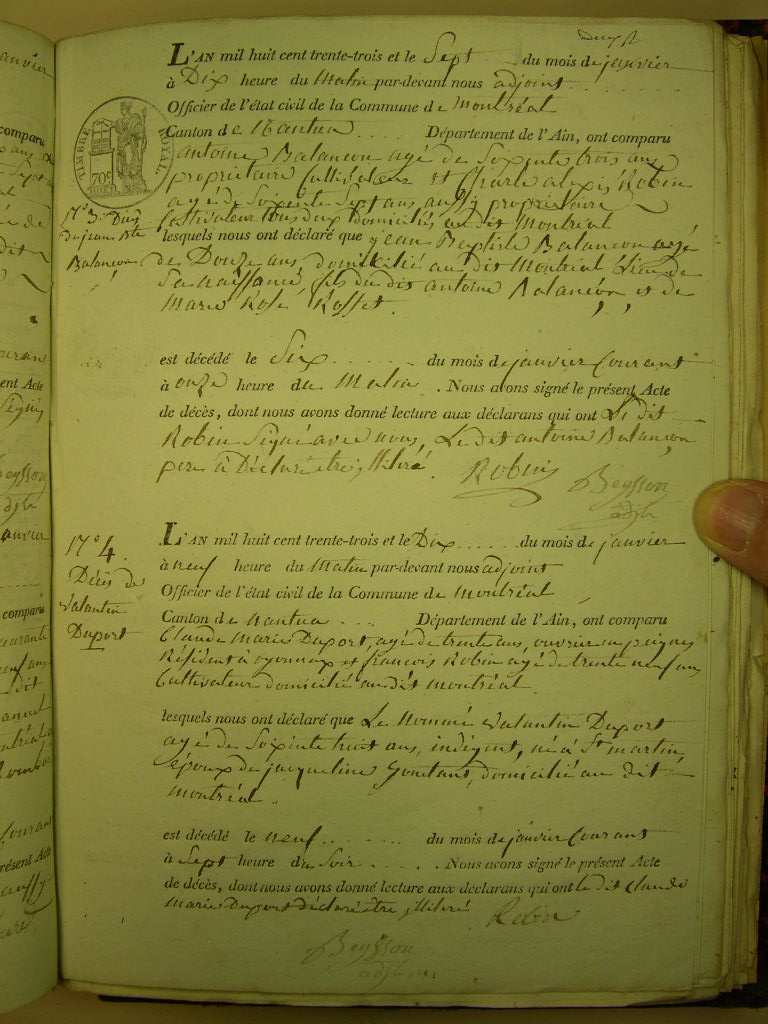 L'AN mil huit cent trente-trois et le Sept du mois de janvier
à Dix heure du Matin par-devant nous adjoint
Officier de l'état civil de la Commune de Montréal
Canton de Nantua Département de l'Ain, ont comparu
antoine Balancon agé de Soixente trois ans
propriétaire Cultivateur et Charle alexis Robin
agé de Soixente Sept ans aussy propriétaire
Cultivateur tous deux domiciliés au dit Montréal
lesquels nous ont déclaré que jean Baptiste Balancon agé
de Douze ans, domicilié au dit Montréal Lieu de
Sa naissance, fils du dit antoine Balancon et de
Marie Rose Rosset.
TIMBRE ROYAL
70c
N.o 3.
du jean Bte
Balancon
est décédé le Six du mois de janvier Courant
à onze heure du Matin. Nous avons signé le présent Acte
de décès, dont nous avons donné lecture aux déclarans qui ont Le dit
Robin Signé avec nous, Le dit antoine Balançon
pere à Déclaré être illitéré.
Robin
Beysson
adjt
N.o 4.
Décès de
Valantin
Duport
L'AN mil huit cent trente-trois et le Dix du mois de janvier
à neuf heure du Matin par-devant nous adjoint
Officier de l'état civil de la Commune de Montréal
Canton de nantua Département de l'Ain, ont comparu
Claude Marie Duport, agé de trente ans, ouvrier en peignes
Résident à oyonnax et francois Robin agé de trente neuf ans
Cultivateur domicilié au dit montréal.
lesquels nous ont déclaré que Le Nommé Valantin Duport
agé de Soixente huit ans, indigent, né à St martin,
époux de jacqueline domicilié au dit
montréal.
est décédé le neuf du mois de janvier Courant
à Sept heure du Soir. Nous avons signé le présent Acte
de décès, dont nous avons donné lecture aux déclarans qui ont le dit Claude
Marie Duport déclaré être illitéré
Robin
Beysson
adjt